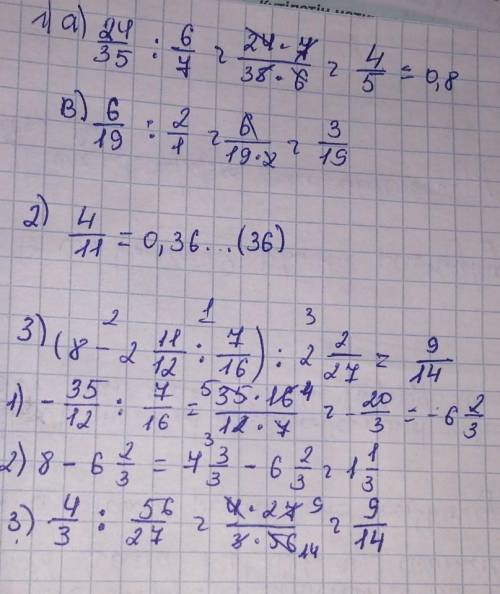 1) а) 24/35 : 6/7 = 24·7/35·6 = 4/5 = 0,8
в) 6/19 : 2/1 = 6/19·2 = 3/19
2) 4/11 = 0,36...(36)
2 1 3
3) (8 - 2 11/12 : 7/16) : 2 2/27 = 9/14
1) - 35/12 : 7/16 = 5 35·16 4/12·7 3 = - 20/3 = - 6 2/3
2) 8 - 6 2/3 = 7 3/3 - 6 2/3 = 1 1/3
3) 4/3 : 56/27 = 4·27 9/3·56 14 = 9/14